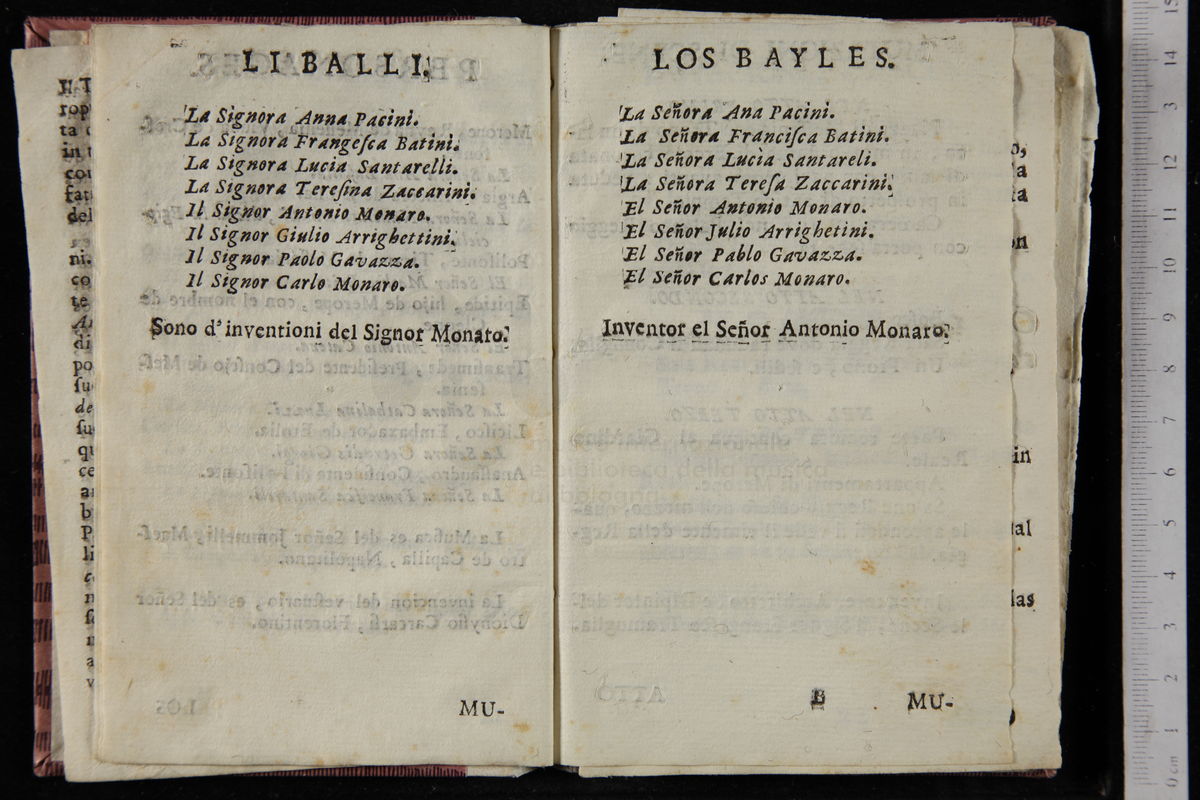 LI BALLI.
La Signora Anna Pacini.
La Signora Frangeſca Batini.
La Signora Lucia Santarelli.
La Signora Tereſina Zaccarini.
Il Signor Antonio Monaro.
Il Signor Giulio Arrighettini.
Il Signor Paolo Gavazza.
Il Signor Carlo Monaro.
Sono d'inventioni del Signor Monaro.
MU-
LOS BAYLES.
La Señora Ana Pacini.
La Señora Franciſca Batini.
La Señora Lucia Santareli.
La Señora Tereſa Zaccarini.
El Señor Antonio Monaro.
El Señor Julio Arrighetini.
El Señor Pablo Gavazza.
El Señor Carlos Monaro.
Inventor el Señor Antonio Monaro.
B MU-